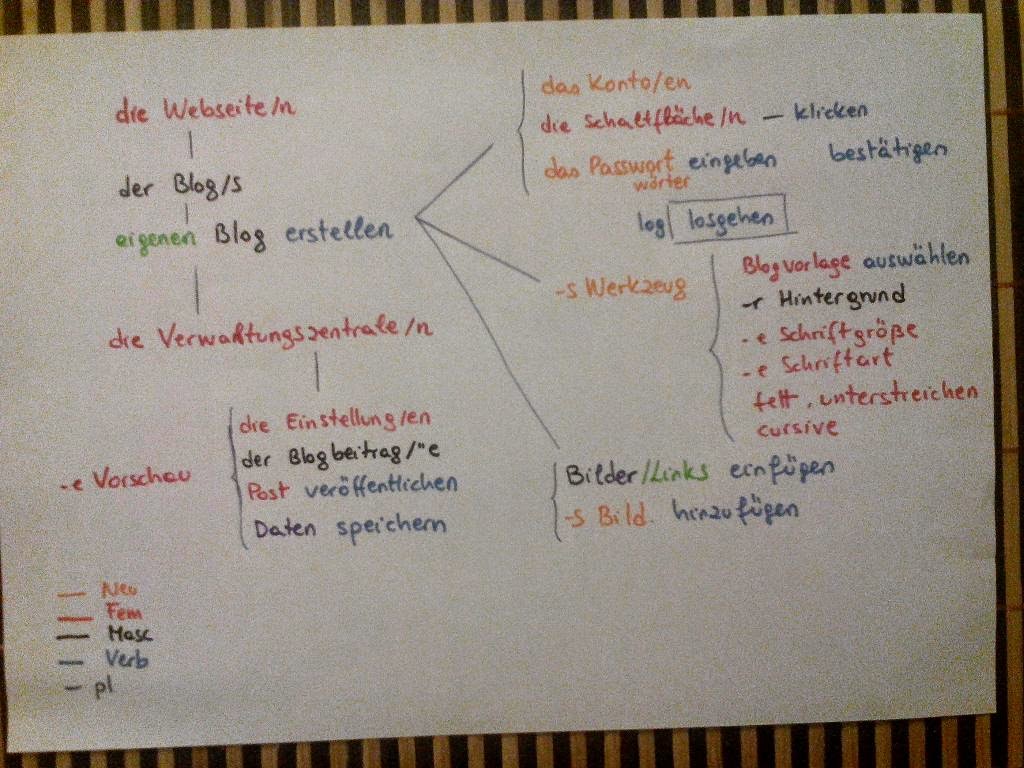 die Webseite/n
der Blog/s
eigenen Blog erstellen
die Verwaltungszentrale/n
-e Vorschau
die Einstellung/en
der Blogbeitrag/"e
Post veröffentlichen
Daten speichern
das Konto/en
die Schaltfläche/n — klicken
das Passwort eingeben bestätigen
wörter
log losgehen
-s Werkzeug
Blogvorlage auswählen
-r Hintergrund
-e Schriftgröße
-e Schriftart
fett, unterstreichen
cursive
Bilder/Links einfügen
-s Bild. hinzufügen
— Neu
— Fem
— Masc
— Verb
— pl